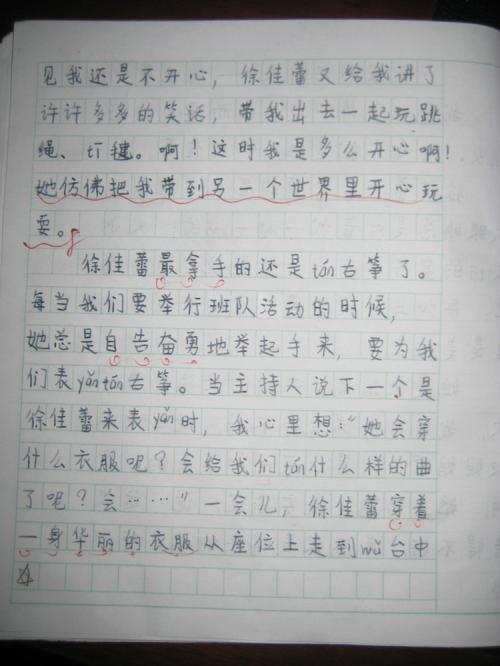 见我还是不开心，徐佳蕾又给我讲了
许许多多的笑话，带我出去一起玩跳
绳、tī毽。啊！这时我是多么开心啊！
她仿佛把我带到另一个世界里开心玩
耍。
徐佳蕾最拿手的还是tán右筝了。
每当我们要举行班队活动的时候，
她总是自告奋勇地举起手来，要为我
们表yǎn tán右筝。当主持人说下一个是
徐佳蕾来表yǎn时，我心里想：“她会穿
什么衣服呢？会给我们tán什么样的曲
了呢？会……”一会儿，徐佳蕾穿着
一身华丽的衣服从座位上走到wǔ台中